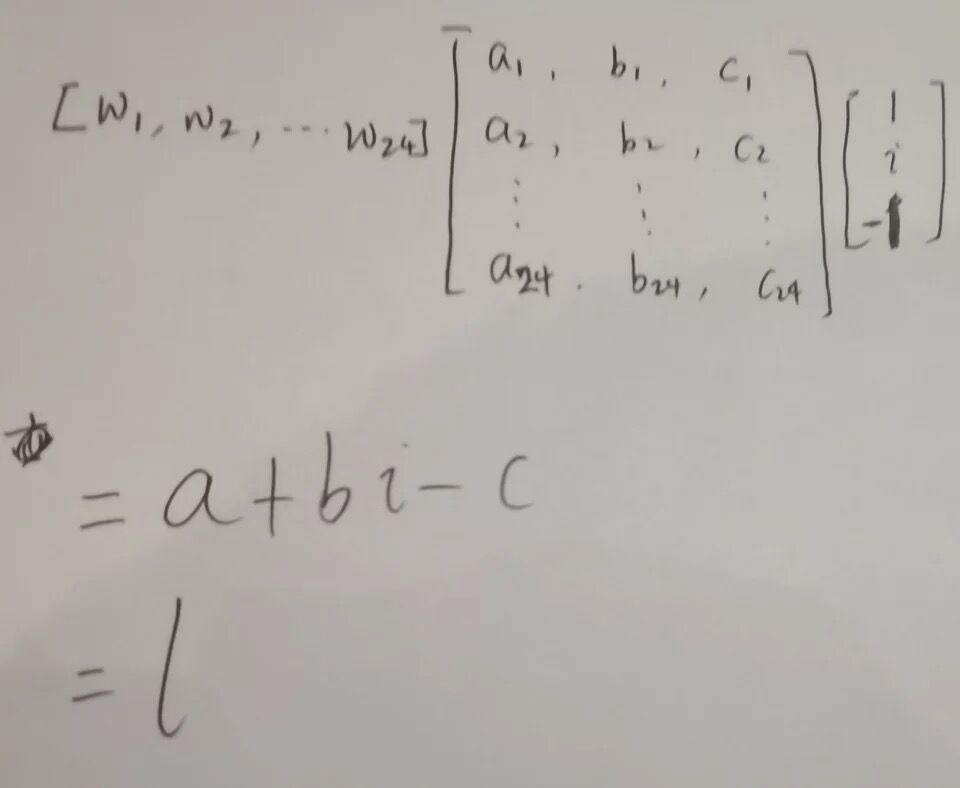 [w₁, w₂, ... w₂₄] [a₁, b₁, c₁] [1]
[a₂, b₂, c₂] [i]
[⋮ ⋮ ⋮] [-1]
[a₂₄. b₂₄, c₂₄]
= a + bi - c
= l